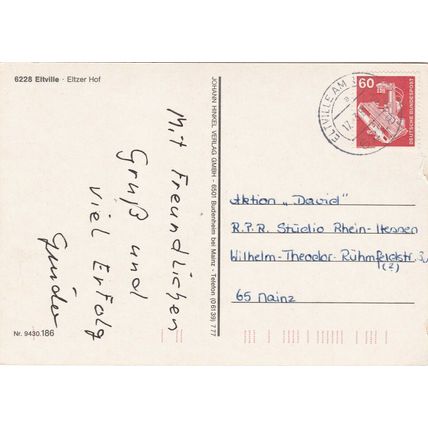 6228 Eltville · Eltzer Hof
Mit Freundlichen
Gruß und
viel Erfolg
Nr. 9430.186
JOHANN HINKEL VERLAG GMBH · 6501 Budenheim bei Mainz · Telefon (0 61 39) 7 77
ELTVILLE AM
60
DEUTSCHE BUNDESPOST
Aktion „David"
R.P.R. Studio Rhein-Hessen
Wilhelm-Theodor-
(2)
65 Mainz